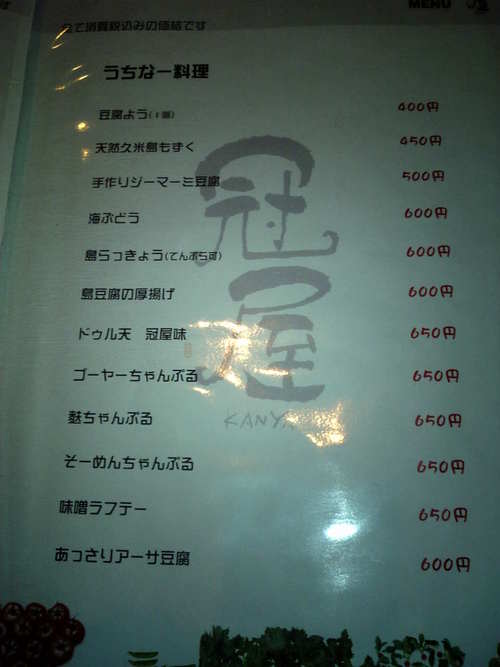 MENU
全て消費税込みの価格です
うちなー料理
豆腐よう(1個) 400円
天然久米島もずく 450円
手作りジーマーミ豆腐 500円
海ぶどう 600円
島らっきょう(てんぷら可) 600円
島豆腐の厚揚げ 600円
ドゥル天 冠屋味 650円
ゴーヤーちゃんぷる 650円
麩ちゃんぷる 650円
そーめんちゃんぷる 650円
味噌ラフテー 650円
あっさりアーサ豆腐 600円
冠屋
KANYA